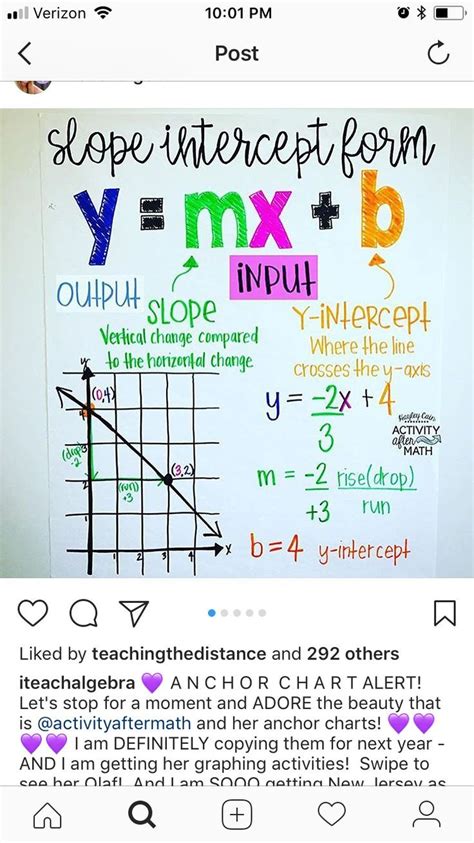 Verizon
10:01 PM
Post
slope intercept form
y = mx + b
OUtPUt
iNPUt
SLOPE
Vertical change compared
to the horizontal change
Y-iNtERCEPt
Where the line
crosses the y-axis
y
(0,4)
4
3
(drop)
-2
2
(run)
+3
(3,2)
1
2
3
4
x
y = -2x + 4
3
Hayley Cain
ACTIVITY
after
MATH
m = -2 rise(drop)
+3 run
b=4 y-intercept
Liked by teachingthedistance and 292 others
iteachalgebra 💜 A N C H O R C H A R T ALERT!
Let's stop for a moment and ADORE the beauty that
is @activityaftermath and her anchor charts! 💜💜
💜💜 I am DEFINITELY copying them for next year -
AND I am getting her graphing activities! Swipe to
see her Olaf! And I am SOOO getting New Jersey as